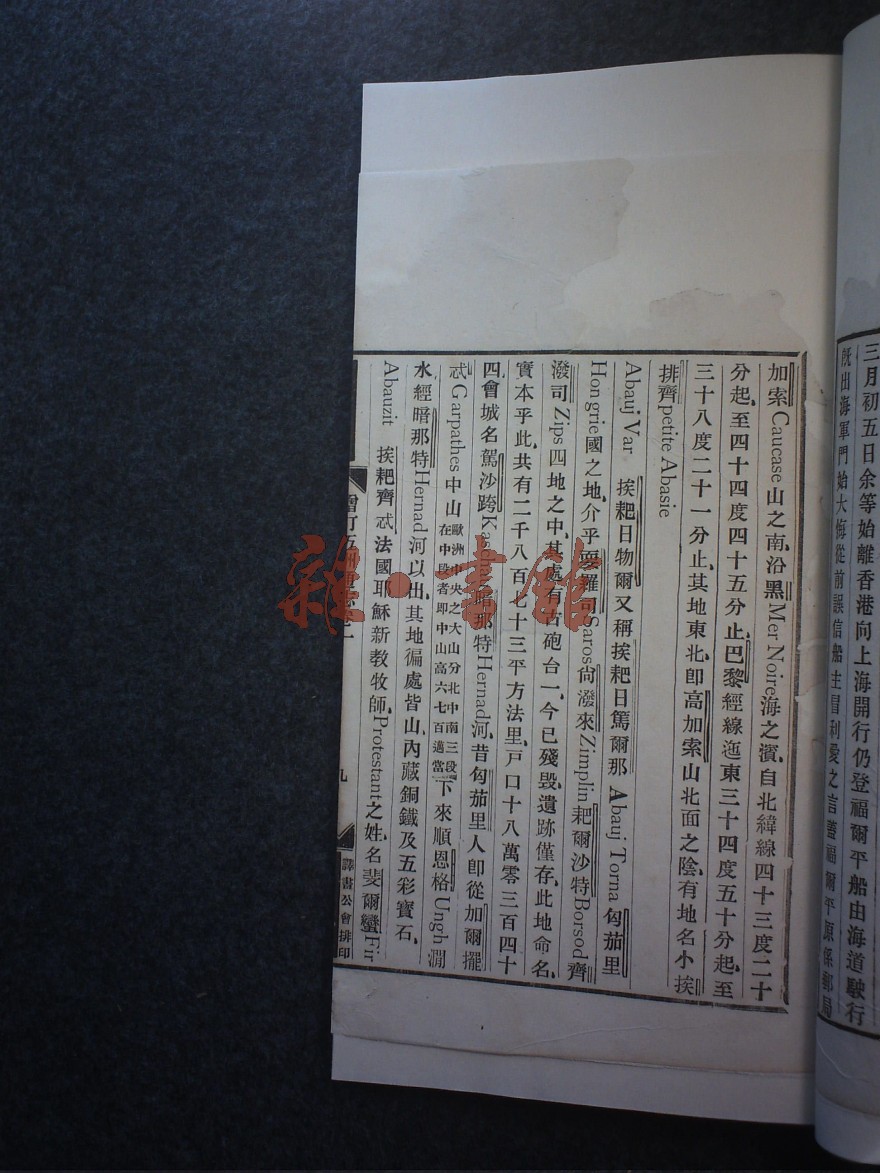 三月初五日余等始離香港向上海開行仍登福爾平船由海道駛行
既出海軍門始大悔從前誤信船主冒利愛之言蓋福爾平原係郵局
加索Caucase山之南、沿黑Mer Noire海之濱、自北緯線四十三度二十
分起、至四十四度四十五分止、巴黎經線迤東三十四度五十分起、至
三十八度二十一分止、其地東北、卽高加索山北面之陰、有地名小挨
排齊petite Abasie
Abauj Var 挨耙日物爾又稱挨耙日篤爾那 Abauj Torna 匈茄里
Hongrie國之地、介乎耍羅司Saros尙潑來Zimplin耙爾沙特Borsod齊
潑司Zips四地之中、其處有古砲台一、今已殘毀、遺跡僅存、此地命名、
實本乎此、共有二千八百七十三平方法里、戸口十八萬零三百四十
四、會城名駕沙跨 暗那特Hernad河、昔匈茄里人卽從加爾擺
忒Garpathes中山歐洲中央之大山分北中南三段在中段者即中山高六七百邁當下來順恩格Ungh澗
水經暗那特Hernad河以出、其地徧處皆山、內藏銅鐵及五彩寶石、
Abauzit 挨耙齊忒、法國耶穌新教牧師、Protestant之姓、名斐爾蠻Fir
九
譯書公會排印
雜·書館